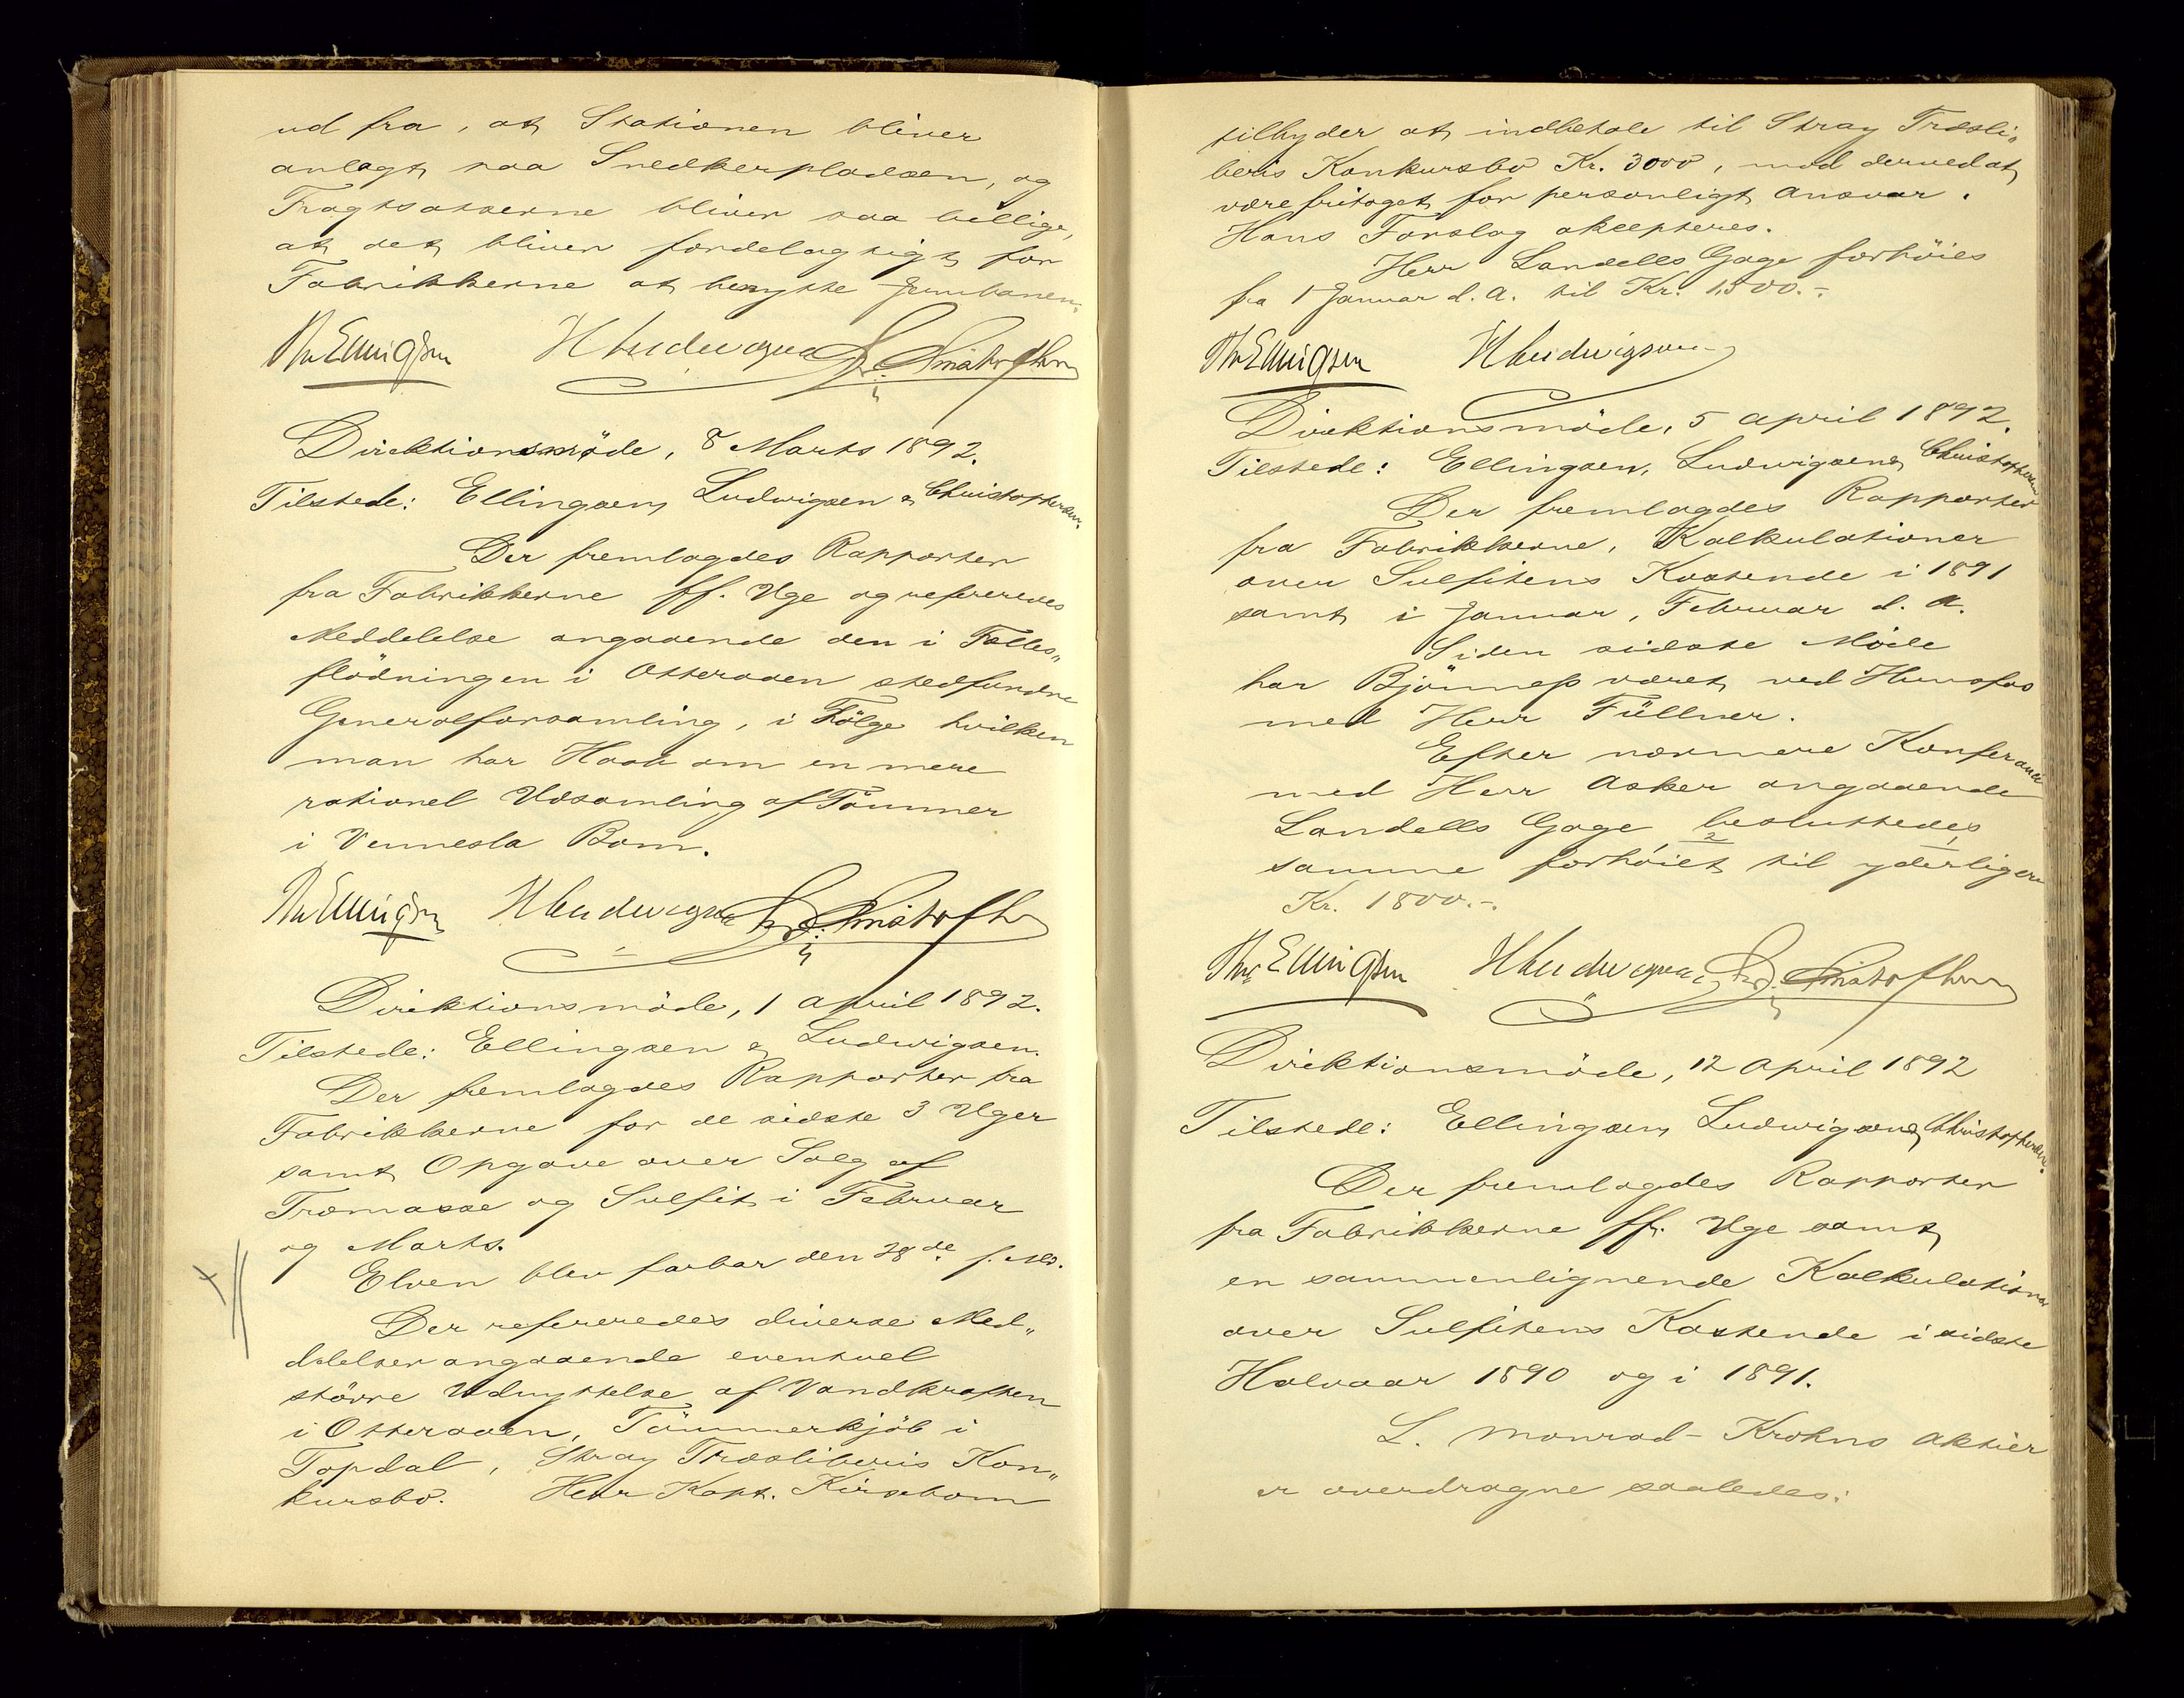 ud fra, at Stationen bliver
anlagt paa Snedkerpladsen, og
Fragtsatserne bliver saa billige,
at det bliver fordelagtigt for
Fabrikkerne at benytte Jernbanen.
Th Ellingsen H Ludwigsen Chr. Christophersen
Direktionsmöde, 8 Marts 1892.
Tilstede: Ellingsen, Ludwigsen & Christophersen.
Der fremlagdes Rapporter
fra Fabrikkerne ff. Uge og refereredes
Meddelelse angaaende den i Fælles„
flödningen i Otteraaen stedfundne
Generalforsamling, i Fölge hvilken
man har Haab om en mere
rationel Udsamling af Tömmer
i Vennesla Bom.
Th Ellingsen H Ludwigsen Chr. Christophersen
Direktionsmöde, 1 April 1892.
Tilstede: Ellingsen & Ludwigsen.
Der fremlagdes Rapporter fra
Fabrikkerne for de sidste 3 Uger
samt Opgave over Salg af
Træmasse og Sulfit i Februar
og Marts.
Elven blev farbar den 28de f. Md.
Der refereredes diverse Med„
delelser angaaende eventuel
större Udnyttelse af Vandkraften
i Otteraaen, Tömmerkjöb i
Topdal, Stray Træsliberis Kon„
kursbo. Herr Kapt. Kirsebom
tilbyder at indbetale til Stray Træsli„
beris Konkursbo Kr. 3000, mod derved at
være fritaget for personligt Ansvar.
Hans Forslag akcepteres.
Herr Landells Gage forhöies
fra 1 Januar d. A. til Kr. 1500.-
Th Ellingsen H Ludwigsen
Direktionsmöde, 5 April 1892.
Tilstede: Ellingsen, Ludwigsen & Christophersen
Der fremlagdes Rapporter
fra Fabrikkerne, Kalkulationer
over Sulfitens Kostende i 1891
samt i Januar, Februar d. A.
Siden sidste Möde
har Bjönness været ved Hunsfos
med Herr Füllner.
Efter nærmere Konferance
med Herr Asker angaaende
Landells Gage besluttedes
samme forhöiet til yderligere
Kr. 1800.-
Th Ellingsen H Ludwigsen Chr. Christophersen
Direktionsmöde, 12 April 1892
Tilstede: Ellingsen, Ludwigsen & Christophersen.
Der fremlagdes Rapporter
fra Fabrikkerne ff. Uge samt
en sammenlignende Kalkulation
over Sulfitens Kostende i sidste
Halvaar 1890 og i 1891.
L. Monrad-Krohns Aktier
er overdragne saaledes: